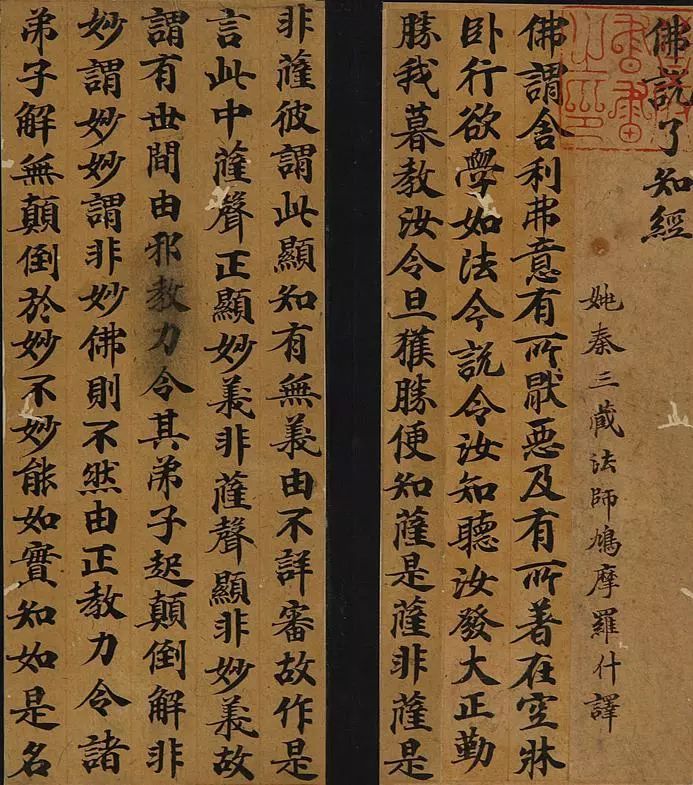 佛説了知經
姚秦三藏法師鳩摩羅什譯
佛謂舍利弗意有所厭惡及有所著在空牀
卧行欲學如法今説令汝知聽汝發大正勤
勝我暮教汝令旦獲勝便知薩是薩非薩是
非薩彼謂此顯知有無義由不詳審故作是
言此中薩聲正顯妙義非薩聲顯非妙義故
謂有世間由邪教力令其弟子起顛倒解非
妙謂妙妙謂非妙佛則不然由正教力令諸
弟子解無顛倒於妙不妙能如實知如是名